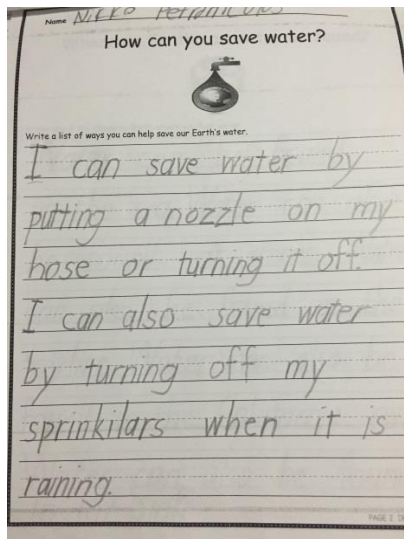 Name Nikko
How can you save water?
Write a list of ways you can help save our Earth's water.
I can save water by
putting a nozzle on my
hose or turning it off.
I can also save water
by turning off my
sprinkilars when it is
raining.
PAGE 2